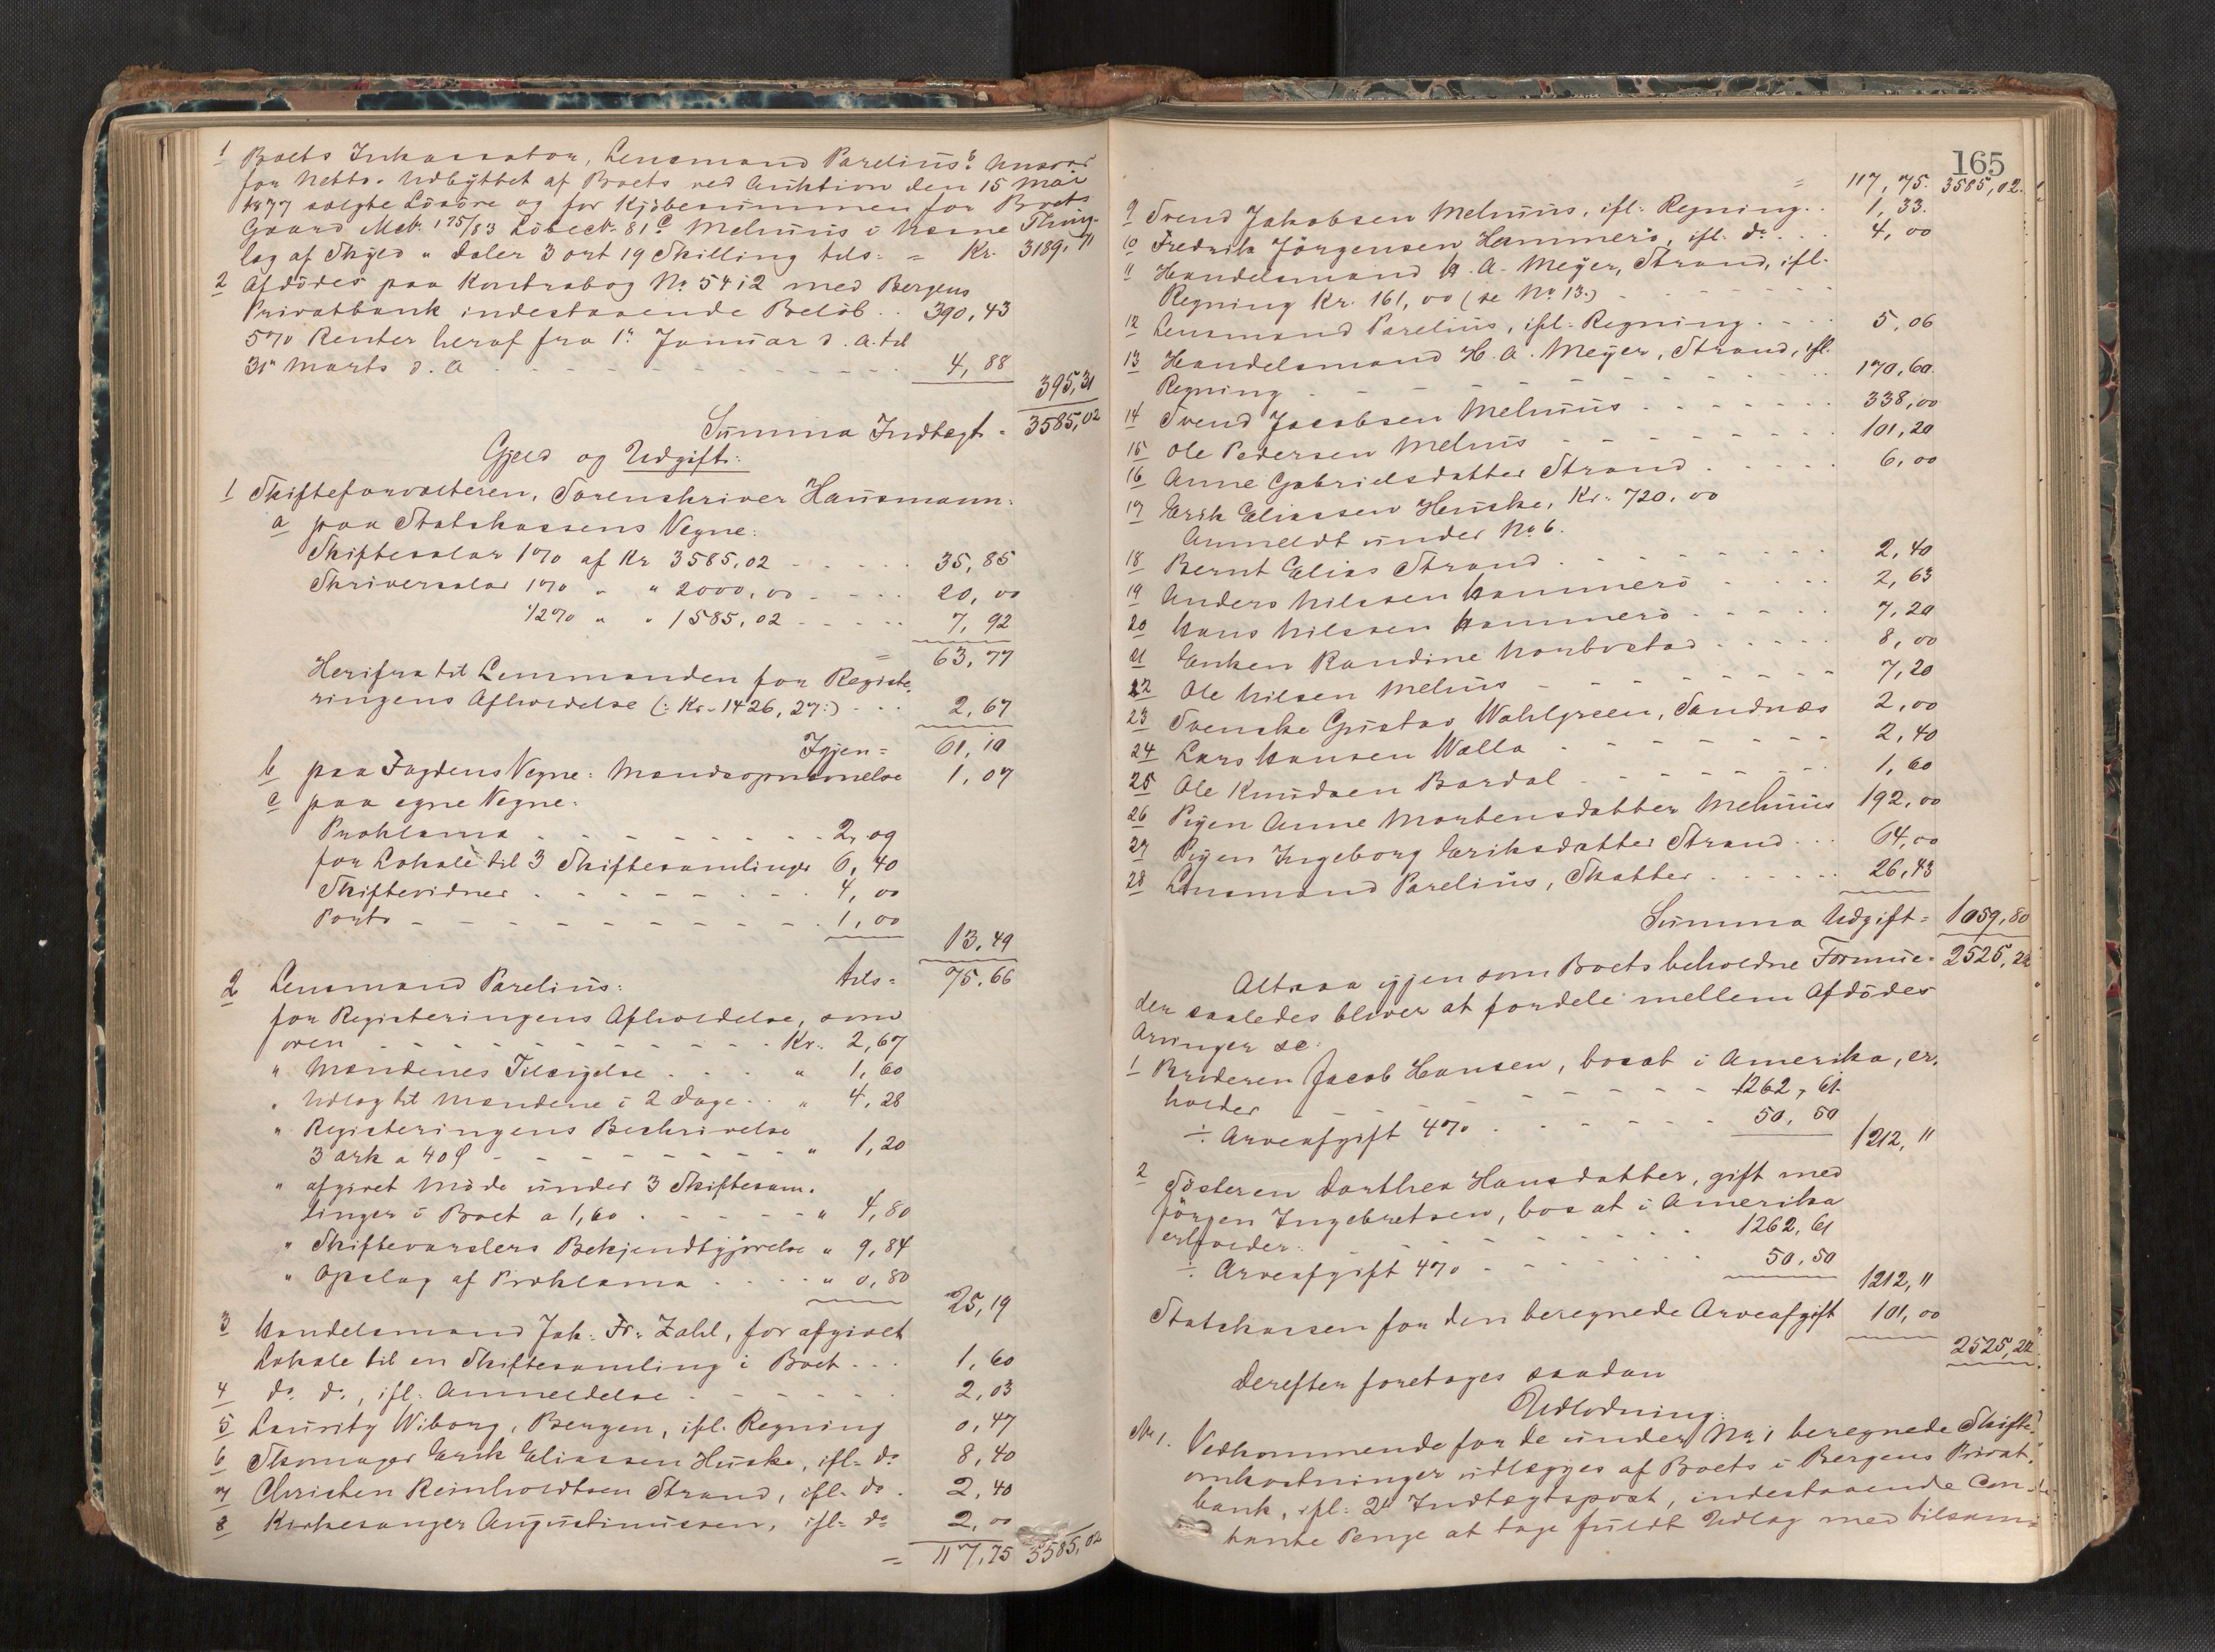 1 Boets Inkassator, Lensmand Parelius's Ansvar
for Netto-Udbyttet af Boets ved Auktion den 15 Mai
1877 solgte Lösöre og for Kjöbesummen for Boets
Gaard Matr. 175/83 Löbenr. 81c Melnuus i Næsne Thing-
lag af Skyld " Daler 3 ort 19 Skilling tils. = Kr. 3189,71
2 Afdödes paa Kontrabog No 5412 med Bergens
Privatbank indestaaende Belöb .. 390,43
5% Renter heraf fra 1' Januar d. A. til
31' Marts d. A - - - 4,88
395,31
Summa Indtægt = 3585,02
Gjeld og Udgift:
1 Skifteforvalteren, Sorenskriver Hausmann:
a paa Statskassens Vegne:
Skiftesalær 1% af Kr 3585,02 - - - 35,85
Skriversalær 1% " " 2000,00 - - - 20,00
1/2% " " 1585,02 - - - 7,92
= 63,77
Herifra til Lensmanden for Registe-
ringens Afholdelse (: Kr. 1426,27:) ... 2,67
Igjen = 61,10
b paa Fogdens Vegne: Mandsopnævnelse 1,07
c paa egne Vegne:
Proklama - - - 2,09
for Lokale til 3 Skiftesamlinger 6,40
Skiftevidner - - - 4,00
Porto - - - 1,00
13,49
tils = 75,66
2 Lensmand Parelius:
for Registeringens Afholdelse, som
oven - - - Kr. 2,67
" Mændenes Tilsigelse . . . " 1,60
" Udlæg til Mændene i 2 Dage .. " 4,28
" Registeringens Beskrivelse
3 Ark a 40 ø - - - " 1,20
" afgivet Möde under 3 Skiftesam-
linger i Boet a 1,60 - - - " 4,80
" Skiftevarslers Bekjendtgjörelse " 9,84
" Opslag af Proklama . . . " 0,80
25,19
3 Handelsmand Joh. Fr. Zahl, for afgivet
Lokale til en Skiftesamling i Boet ... 1,60
4 do do, ifl. Anmeldelse - - - 2,03
5 Lauritz Wiborg, Bergen, ifl. Regning 0,47
6 Skomager Erik Eliassen Huske, ifl. do 8,40
7 Christen Reinholdtsen Strand, ifl. do . 2,40
8 Kirkesanger Augustinussen, ifl. do 2,00
= 117,75 3585,02
165
= 117,75. 3585,02.
9 Svend Jakobsen Melnuus, ifl. Regning .. 1,33.
10 Fredrik Jörgensen Hammerö, ifl. do . . . 4,00
11 Handelsmand H. A. Meyer, Strand, ifl.
Regning Kr. 161,00 (se No 13.) - - -
12 Lensmand Parelius, ifl. Regning - - - 5,06
13 Handelsmand H. A. Meyer, Strand, ifl.
Regning - - - 170,60.
14 Svend Jacobsen Melnuus - - - 338,00
15 Ole Pedersen Melnus - - - 101,20
16 Anne Gabrielsdatter Strand - - - 6,00
17 Erik Eliassen Huske, Kr. 720.00
Anmeldt under No 6.
18 Bernt Elias Strand - - - 2,40
19 Anders Nilssen Hammerö - - - 2,63
20 Hans Nilssen Hammerö - - - 7,20
21 Enken Randine Norbostad - - - 8,00
22 Ole Nilsen Melnus - - - 7,20
23 Svenske Gustav Wahlgreen, Sandnæs 2,00
24 Lars Hansen Walla - - - 2,40
25 Ole Knudsen Bardal - - - 1,60
26 Pigen Anne Mortensdatter Melnuus 192,00
27 Pigen Ingeborg Eriksdatter Strand ... 64,00
28 Lensmand Parelius, Skatter - - - 26,43
Summa Udgift = 1059,80
Altsaa igjen som Boets beholdne Formue = 2525,22
der saaledes bliver at fordele mellem Afdödes
Arvinger se:
1 Broderen Jacob Hansen, bosat i Amerika, er-
holder - - - 1262,61.
÷ Arveafgift 4% - - - 50,50
1212,"
2 Sösteren Dorthea Hansdatter, gift med
Jörgen Ingebretsen, bosat i Amerika
erholder: - - - 1262,61
÷ Arveafgift 4% - - - 50,50
1212,"
Statskassen for den beregnede Arveafgift 101,00
2525,22
Derefter foretages saadan
Udlodning:
No 1. Vedkommende for de under No 1 beregnede Skifte-
omkostninger udlægges af Boets i Bergens Privat-
bank, ifl. 2' Indtægtspost, indestaaende Con-
tante Penge at tage fuldt Udlæg med tilsam-